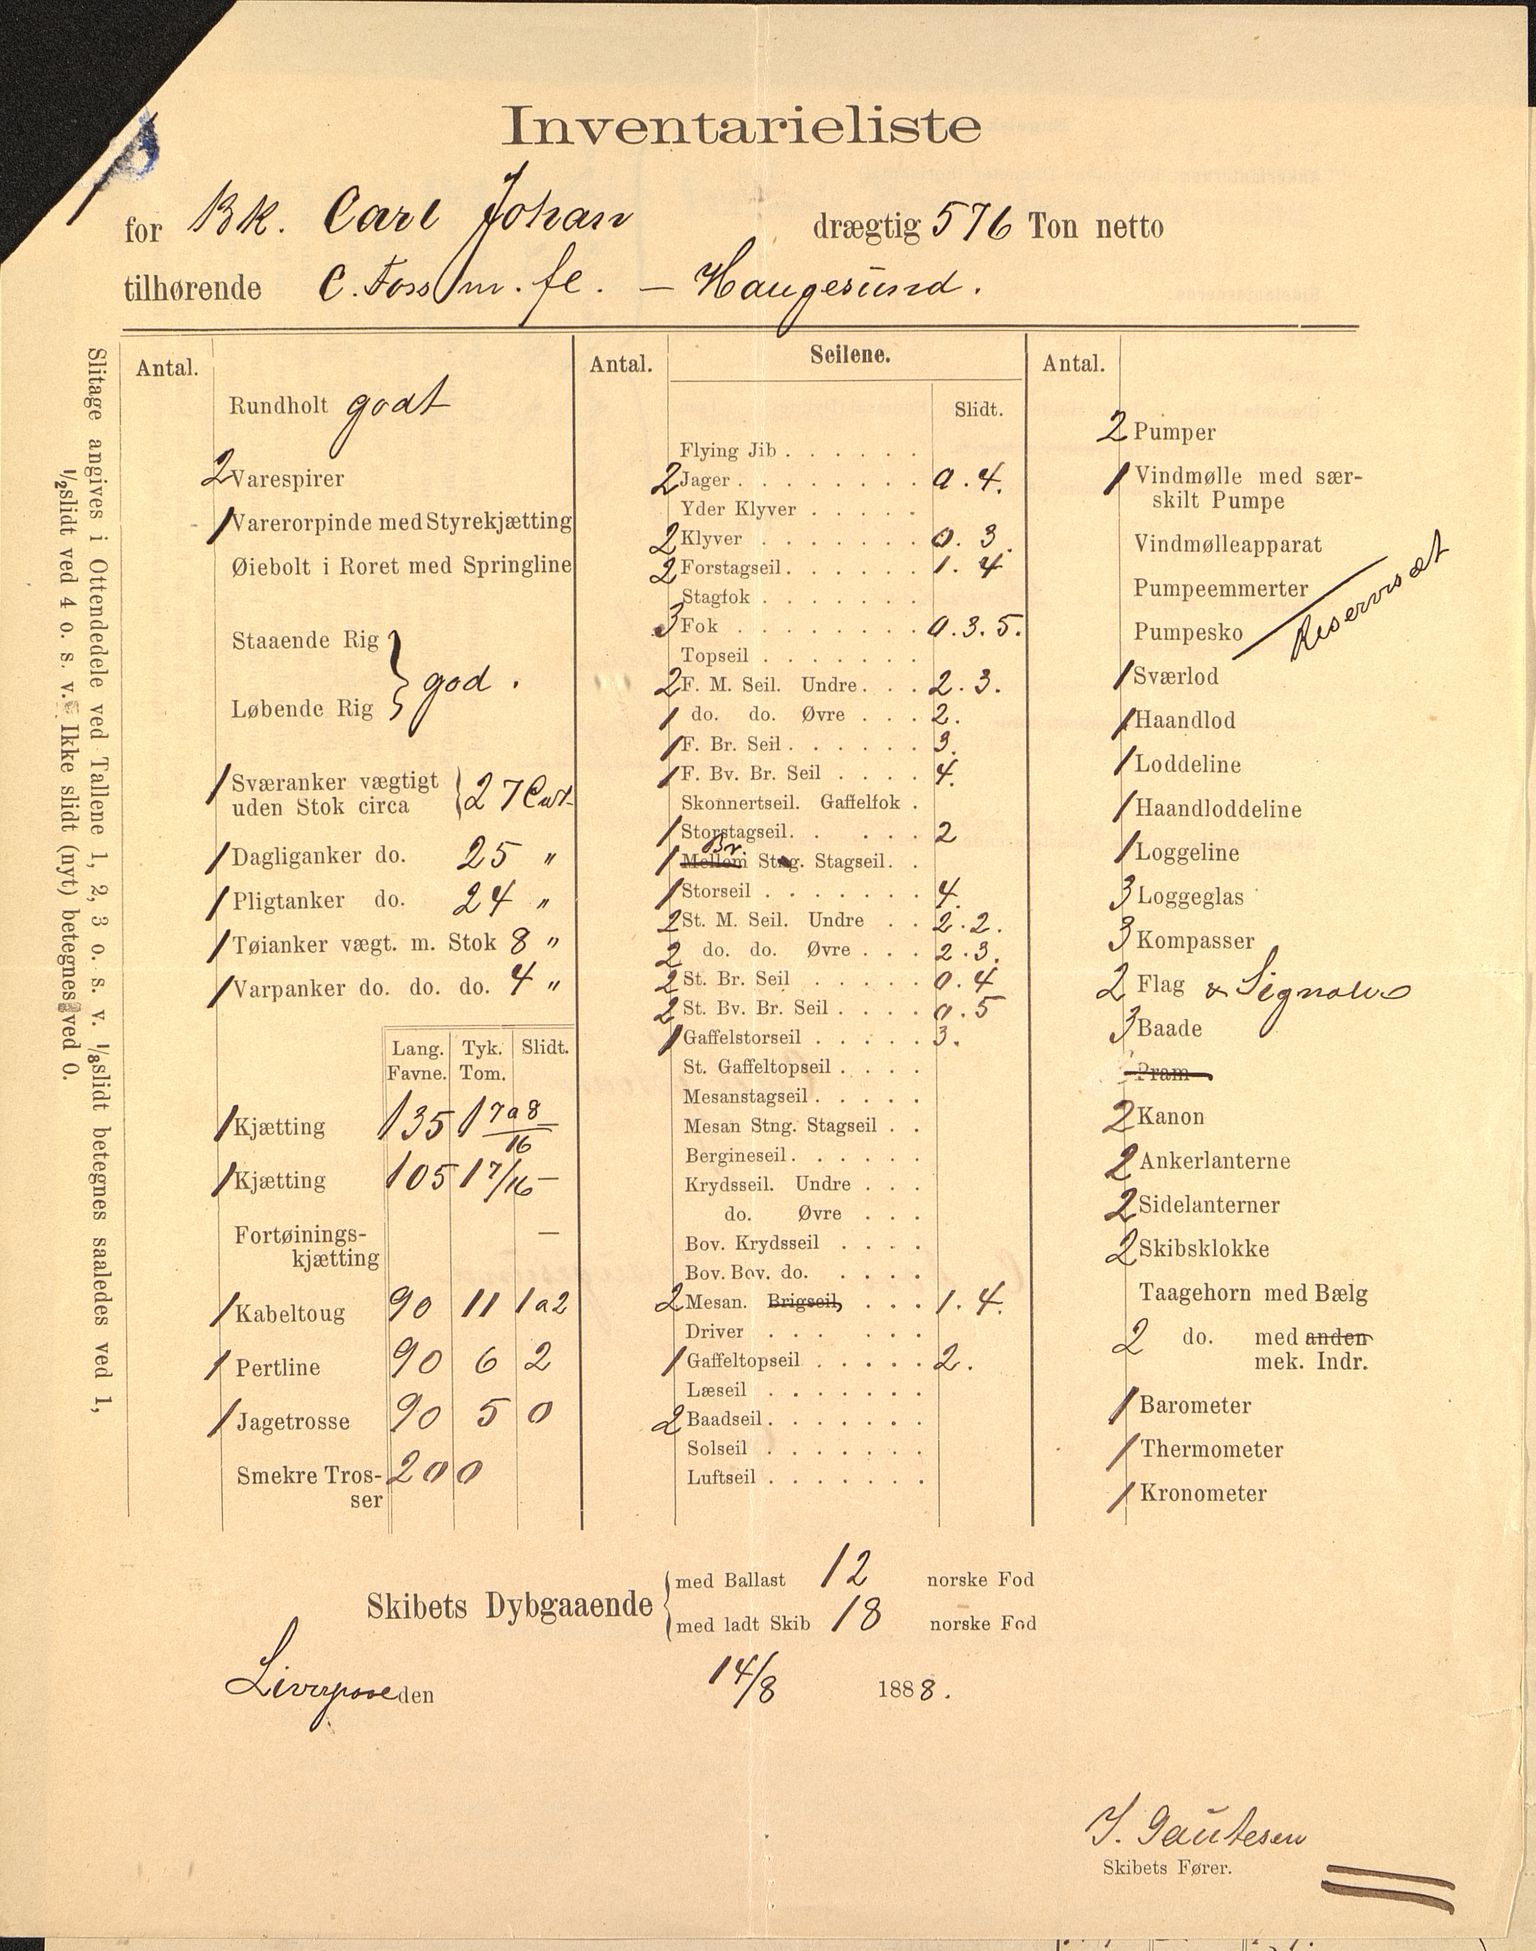 Inventarieliste
for Bk. Carl Johan drægtig 576 Ton netto
tilhørende C. Foss m. fl. — Haugesund.
Slitage angives i Ottendedele ved Tallene 1, 2, 3 o. s. v. 1/8 slidt betegnes saaledes ved 1,
1/2 slidt ved 4 o. s. v. Ikke slidt (nyt) betegnes ved 0.
Antal.
Rundholt godt
2 Varespirer
1 Varerorpinde med Styrekjætting
Øiebolt i Roret med Springline
Staaende Rig
Løbende Rig } god.
1 Sværanker vægtigt
uden Stok circa { 27 Cwt
1 Dagliganker do. 25 "
1 Pligtanker do. 24 "
1 Tøianker vægt. m. Stok 8 "
1 Varpanker do. do. do. 4 "
Lang. Tyk. Slidt.
Favne. Tom.
1 Kjætting 135 1 7 a 8/16
1 Kjætting 105 1 7/16 —
Fortøinings-
kjætting —
1 Kabeltoug 90 11 1 a 2
1 Pertline 90 6 2
1 Jagetrosse 90 5 0
Smekre Tros- 200
ser
Antal. Seilene.
Slidt.
Flying Jib . . . . . .
2 Jager . . . . . . . . 0. 4.
Yder Klyver . . . . .
2 Klyver . . . . . . . 0. 3.
2 Forstagseil . . . . . . 1. 4
Stagfok . . . . . . .
3 Fok . . . . . . . . 0. 3. 5.
Topseil . . . . . . .
2 F. M. Seil. Undre . . . 2. 3.
1 do. do. Øvre . . . 2.
1 F. Br. Seil . . . . . . 3.
1 F. Bv. Br. Seil . . . . 4.
Skonnertseil. Gaffelfok .
1 Storstagseil . . . . . 2
1 Mellem Br. Stng. Stagseil . .
1 Storseil . . . . . . . 4.
2 St. M. Seil. Undre . . 2. 2.
2 do. do. Øvre . . . 2. 3.
2 St. Br. Seil . . . . . 0. 4
2 St. Bv. Br. Seil . . . . 0. 5
1 Gaffelstorseil . . . . . 3.
St. Gaffeltopseil . . . .
Mesanstagseil . . . . .
Mesan Stng. Stagseil . .
Bergineseil . . . . . .
Krydsseil. Undre . . .
do. Øvre . . .
Bov. Krydsseil . . . .
Bov. Bov. do. . . . .
2 Mesan. Brigseil, . . . 1. 4.
Driver . . . . . .
1 Gaffeltopseil . . . . . 2.
Læseil . . . . . . .
2 Baadseil . . . . . . .
Solseil . . . . . . .
Luftseil . . . . . . .
Antal.
2 Pumper
1 Vindmølle med sær-
skilt Pumpe
Vindmølleapparat
Pumpeemmerter
Pumpesko Reservesæt
1 Sværlod
1 Haandlod
1 Loddeline
1 Haandloddeline
1 Loggeline
3 Loggeglas
3 Kompasser
2 Flag & Signaler
3 Baade
Pram
2 Kanon
2 Ankerlanterne
2 Sidelanterner
2 Skibsklokke
Taagehorn med Bælg
2 do. med anden
mek. Indr.
1 Barometer
1 Thermometer
1 Kronometer
Skibets Dybgaaende { med Ballast 12 norske Fod
med ladt Skib 18 norske Fod
Liverpool den 14/8 1888.
J. Gautesen
Skibets Fører.